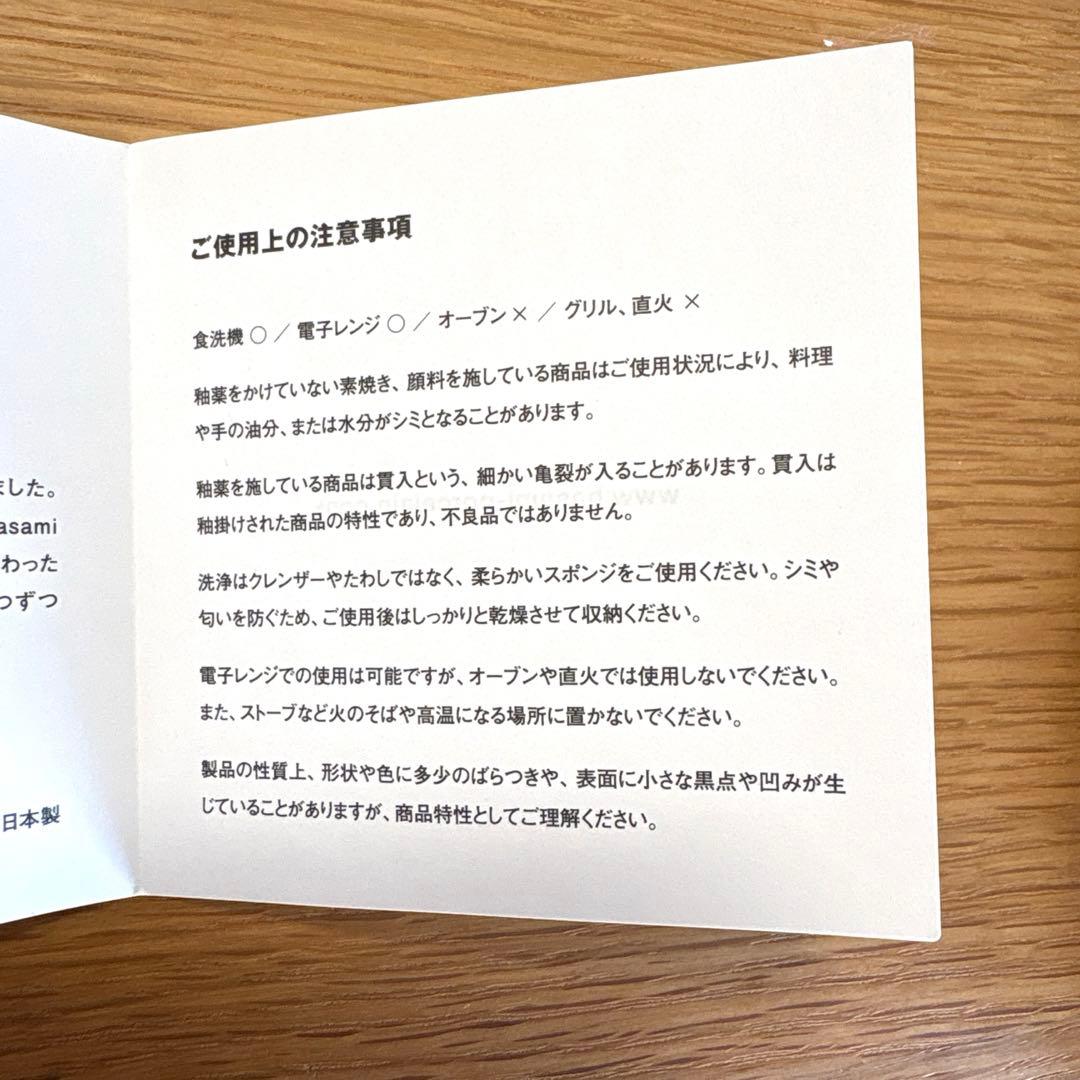 ました。
asami
わった
つずつ
日本製
ご使用上の注意事項
食洗機 ○ / 電子レンジ ○ / オーブン × / グリル、直火 ×
釉薬をかけていない素焼き、顔料を施している商品はご使用状況により、料理
や手の油分、または水分がシミとなることがあります。
釉薬を施している商品は貫入という、細かい亀裂が入ることがあります。貫入は
釉掛けされた商品の特性であり、不良品ではありません。
洗浄はクレンザーやたわしではなく、柔らかいスポンジをご使用ください。シミや
匂いを防ぐため、ご使用後はしっかりと乾燥させて収納ください。
電子レンジでの使用は可能ですが、オーブンや直火では使用しないでください。
また、ストーブなど火のそばや高温になる場所に置かないでください。
製品の性質上、形状や色に多少のばらつきや、表面に小さな黒点や凹みが生
じていることがありますが、商品特性としてご理解ください。